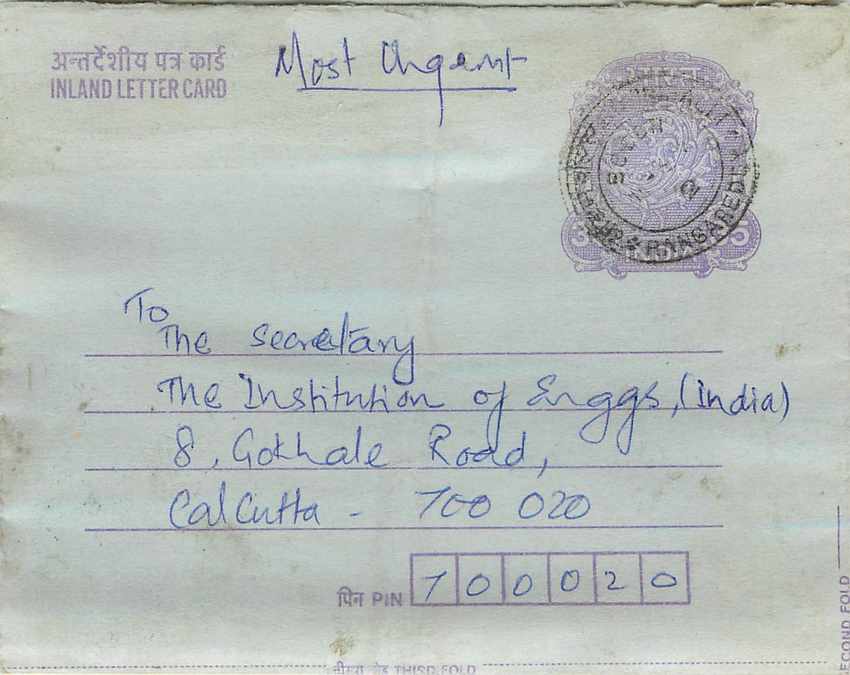 अन्तर्देशीय पत्र कार्ड
INLAND LETTER CARD
Most Urgent
To
The Secretary
The Institution of Enggs, (India)
8, Gokhale Road,
Calcutta - 700 020
पिन PIN 700020
THIRD FOLD
SECOND FOLD